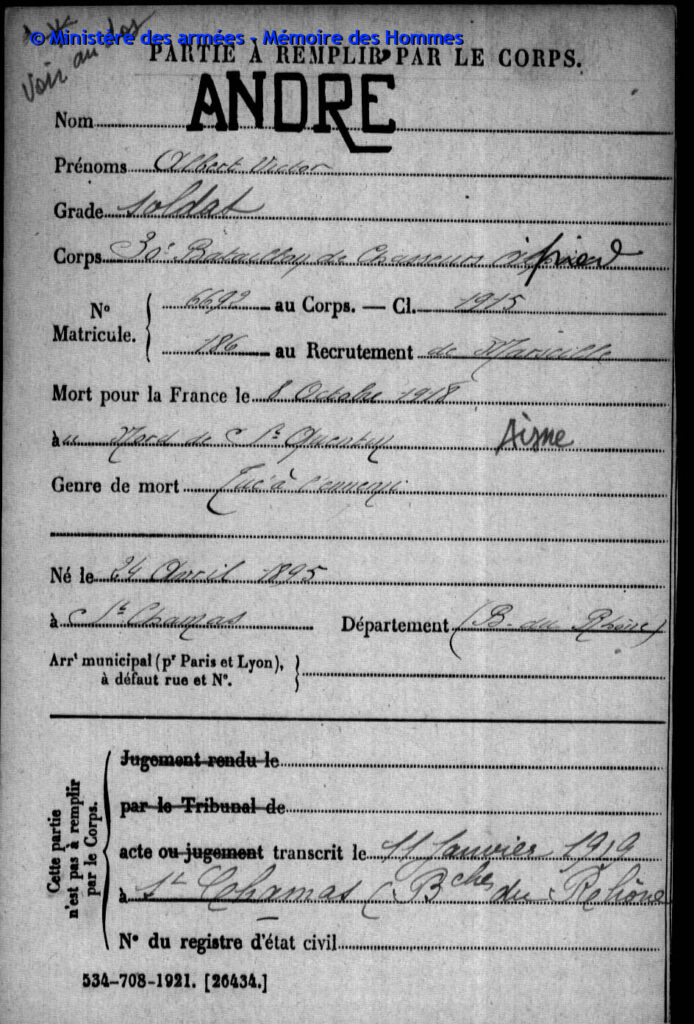 © Ministère des armées - Mémoire des Hommes
Voir au dos
PARTIE À REMPLIR PAR LE CORPS.
Nom ANDRE
Prénoms Albert Victor
Grade Soldat
Corps 30e Bataillon de Chasseurs à pied
No Matricule.
6692 au Corps. — Cl. 1915
186 au Recrutement de Marseille
Mort pour la France le 8 Octobre 1918
au Nord de St Quentin Aisne
Genre de mort Tué à l'ennemi
Né le 24 Avril 1895
à St Chamas Département (B. du Rhône)
Arrt municipal (pr Paris et Lyon),
à défaut rue et N°.
Cette partie n'est pas à remplir par le Corps.
Jugement rendu le
par le Tribunal de
acte ou jugement transcrit le 11 Janvier 1919
à St Chamas (Bches du Rhône
N° du registre d'état civil
534-708-1921. [26434.]